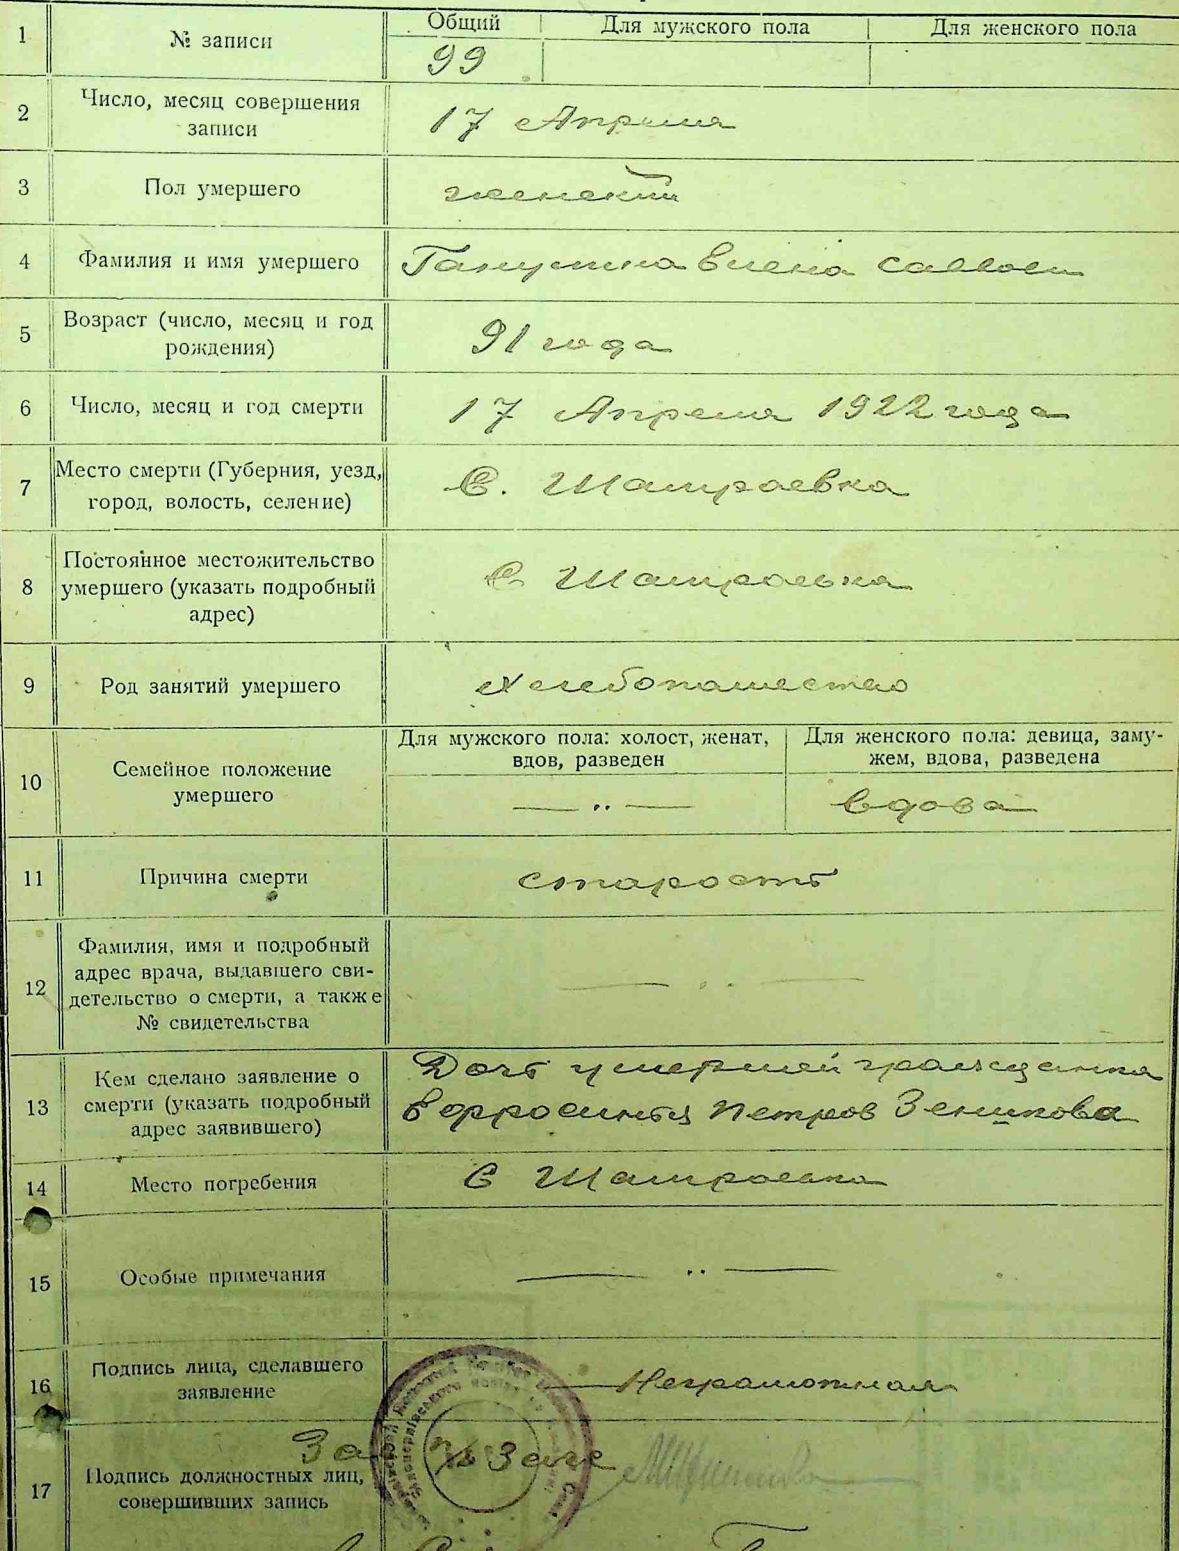 1 № записи Общий Для мужского пола Для женского пола
99
2 Число, месяц совершения
записи
17 Апреля
3 Пол умершего женский
4 Фамилия и имя умершего
5 Возраст (число, месяц и год
рождения)
91 года
6 Число, месяц и год смерти 17 Апреля 1922 года
7 Место смерти (Губерния, уезд,
город, волость, селение)
С. Шатраевка
8 Постоянное местожительство
умершего (указать подробный
адрес)
С Шатраевка
9 Род занятий умершего Хлебопашество
10 Семейное положение
умершего
Для мужского пола: холост, женат,
вдов, разведен
— „ —
Для женского пола: девица, заму-
жем, вдова, разведена
вдова
11 Причина смерти старость
12 Фамилия, имя и подробный
адрес врача, выдавшего сви-
детельство о смерти, а также
№ свидетельства
— „ —
13 Кем сделано заявление о
смерти (указать подробный
адрес заявившего)
Дочь умершей гражданка
Петров
14 Место погребения С Шатраевка
15 Особые примечания — „ —
16 Подпись лица, сделавшего
заявление
Неграмотная
17 Подпись должностных лиц,
совершивших запись